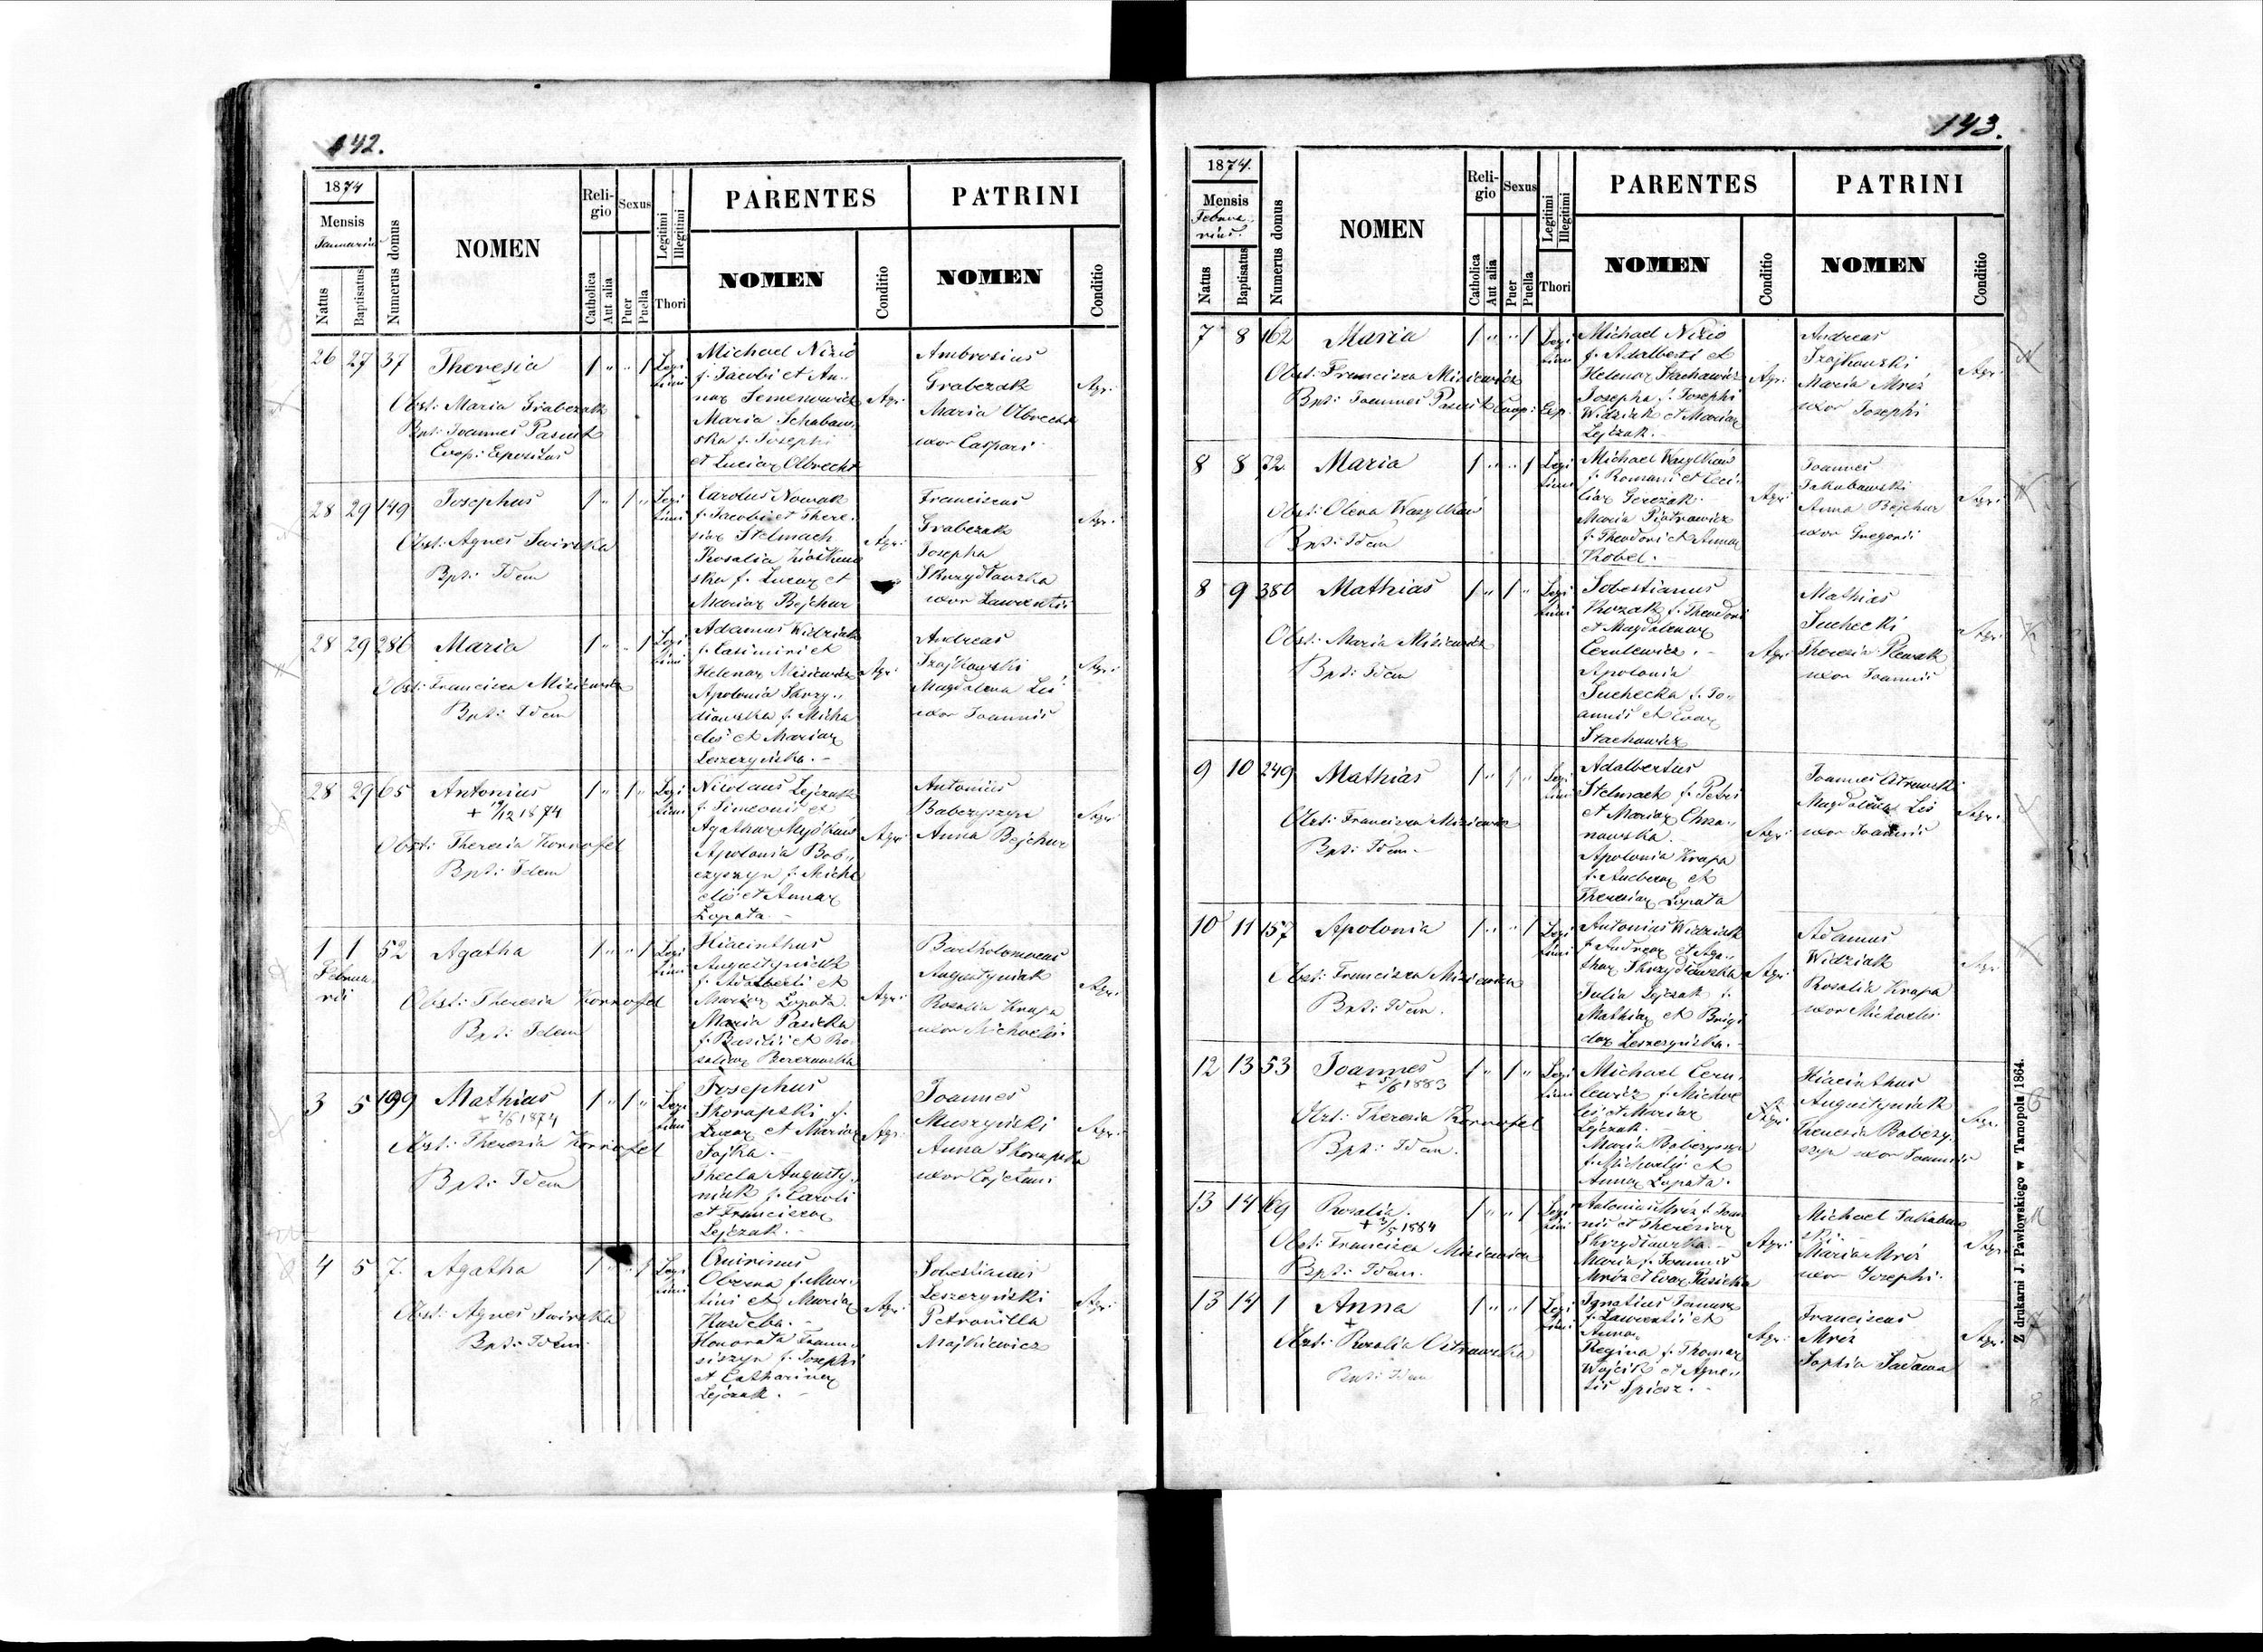 142.
1874
Mensis
Januarius
Natus
Baptisatus
Numerus domus
NOMEN
Reli-
gio
Catholica
Aut alia
Sexus
Puer
Puella
Legitimi
Illegitimi
Thori
PARENTES
NOMEN
Conditio
PATRINI
NOMEN
Conditio
26 27 37 Theresia 1 " " 1 Legi
timi
Obst: Maria Grabczak
Bpt: Joannes Pasiut
Coop: Expositus
Michael Nizio
f. Jacobi et An-
nae Semenowicz
Maria
ska f. Josephi
et Luciae Olbrecht
Agr:
Ambrosius
Grabczak
Maria Olbrecht
uxor Caspari
Agr:
28 29 149 Josephus 1 " 1 " Legi
timi
Obst: Agnes Swirska
Bpt: Idem
Carolus Nowak
f. Jacobi et There-
siae Stelmach
Rosalia
ska f. Lucae et
Mariae Bejchur
Agr:
Franciscus
Grabczak
Josepha
Skrzydłowska
uxor Laurentii
Agr:
28 29 286 Maria 1 " " 1 Legi
timi
Obst: Francisca Misiewicz
Bpt: Idem
Adamus Widziak
f. Casimiri et
Helenae Misiewicz
Apolonia Skrzy-
dłowska f. Micha
elis et Mariae
Leszczyńska. -
Agr:
Andreas
Szajkowski
Magdalena Liś
uxor Joannis
Agr:
28 29 65 Antonius 1 " 1 " Legi
timi
+ 19/12 1874
Obst: Theresia Kornafel
Bpt: Idem
Nicolaus Lejczak
f. Simeonis et
Agathae
Apolonia Bob-
czyszyn f. Micha
elis et Annae
Łopata. -
Agr:
Antonius
Babczyszyn
Anna Bejchur
Agr:
1 1 52 Agatha 1 " " 1 Legi
timi
Februa
rii
Obst: Theresia Kornafel
Bpt: Idem
Hiacinthus
Augustyniak
f. Adalberti et
Mariae Łopata.
Maria Pasicka
f. Basilii et Ro-
saliae Berezowska
Agr:
Bartholomaeus
Augustyniak
Rosalia Krapa
uxor Michaelis
Agr:
3 5 199 Mathias 1 " 1 " Legi
timi
Obst: Theresia Kornafel
Bpt: Idem
Josephus
Skorapski f.
Lucae et Mariae
Sojka. -
Thecla Augusty-
niak f. Caroli
et Franciscae
Lejczak. -
Agr:
Joannes
Muszyński
Anna Skorapska
uxor Cajetani
Agr:
4 5 7. Agatha 1 " " 1 Legi
timi
Obst: Agnes Swirska
Bpt: Idem
Quirinus
Oberna f. Mar-
tini et Mariae
Honorata
siszyn f. Josephi
et Catharinae
Lejczak. -
Agr:
Sobestianus
Leszczyński
Petronilla
Majkiewicz
Agr:
143.
1874.
Mensis
Februa-
rius.
Natus
Baptisatus
Numerus domus
NOMEN
Reli-
gio
Catholica
Aut alia
Sexus
Puer
Puella
Legitimi
Illegitimi
Thori
PARENTES
NOMEN
Conditio
PATRINI
NOMEN
Conditio
7 8 162 Maria 1 " " 1 Legi
timi
Obst: Francisca Misiewicz
Bpt: Joannes Pasiut Coop: Exp:
Michael Nizio
f. Adalberti et
Helenae Stachowicz
Josepha f. Josephi
Widziak et Mariae
Lejczak. -
Agr:
Andreas
Szajkowski
Maria Mróz
uxor Josephi
Agr:
8 8 72. Maria 1 " " 1 Legi
timi
Obst: Olena Wasylków
Bpt: Idem
Michael Wasylków
f. Romani et Ceci-
liae Gerczak.
Maria Piotrowicz
f. Theodori et Annae
Kobel.
Agr:
Joannes
Jakubowski
Anna Bejchur
uxor Gregorii
Agr:
8 9 380 Mathias 1 " 1 " Legi
timi
Obst: Maria Misiewicz
Bpt: Idem
Sobestianus
Kozak f. Theodori
et Magdalenae
Cerulewicz. -
Apolonia
Suchecka f. Jo-
annis et Evae
Stachowicz
Agr:
Mathias
Suchecki
Theresia Plewak
uxor Joannis
Agr:
9 10 249 Mathias 1 " 1 " Legi
timi
Obst: Francisca Misiewicz
Bpt: Idem. -
Adalbertus
Stelmach f. Petri
et Mariae Chrza-
nowska.
Apolonia Krapa
f. Andreae et
Theresiae Łopata
Agr:
Joannes Ostrowski
Magdalena Liś
uxor Joannis
Agr:
10 11 157 Apolonia 1 " " 1 Legi
timi
Obst: Francisca Misiewicz
Bpt: Idem.
Antonius Widziak
f. Andreae et Aga-
thae Skrzydłowska
Julia Lejczak f.
Mathiae et Brigi
dae Leszczyńska. -
Agr:
Adamus
Widziak
Rosalia Krapa
uxor Michaelis
Agr:
12 13 53 Joannes 1 " 1 " Legi
timi
+ 5/6 1883
Obst: Theresia Kornafel
Bpt: Idem.
Michael Ceru-
lewicz f. Michae
lis et Mariae
Lejczak. -
Maria Babczyszyn
f. Michaelis et
Annae Łopata.
Agr:
Hiacinthus
Augustyniak
Theresia Babczy-
szyn uxor Joannis
Agr:
13 14 169 Rosalia. 1 " " 1 Legi
timi
Obst: Francisca Misiewicz
Bpt: Idem.
Antonius Mróz f. Joan
nis et Theresiae
Skrzydłowska. -
Maria f. Joannis
Mróz et Evae Pasicka
Agr:
Michael Jakubow
ski. -
Maria Mróz
uxor Josephi.
Agr:
13 14 1 Anna 1 " " 1 Legi
timi
+
Obst: Rosalia Ostrowska
Bpt: Idem
Ignatius
f. Laurentii et
Annae
Regina f. Thomae
Wojcik et Agne-
tis Spiesz. -
Agr:
Franciscus
Mróz
Sophia Sadama
Agr:
Z drukarni J. Pawłowskiego w Tarnopolu 1864.